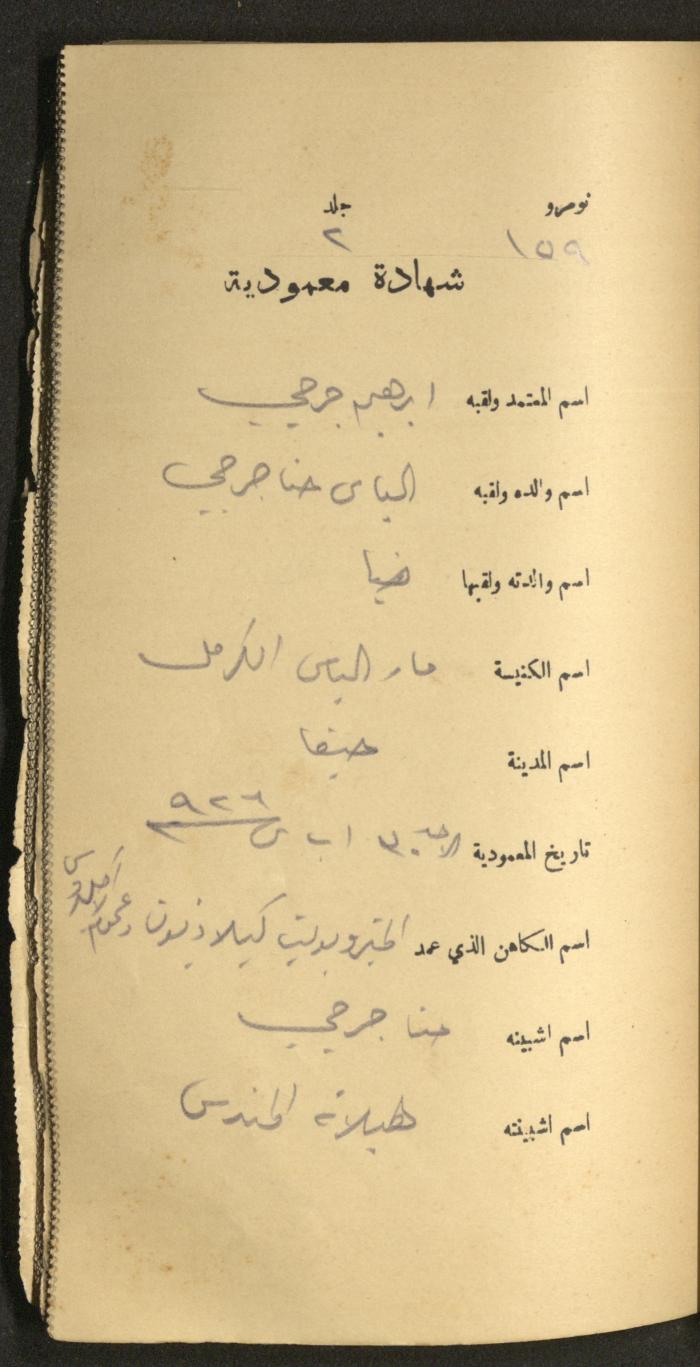 نومرو جلد
١٥٩ ٢
شهادة معمودية
اسم المعتمد ولقبه ابرهيم جرجي
اسم والده ولقبه الياس حنا جرجي
اسم والدته ولقبها ضيا
اسم الكنيسة مار الياس الكرمل
اسم المدينة حيفا
تاريخ المعمودية الاحد ٣٠ اب س ٩٢٦
اسم الكاهن الذي عمد المتروبوليت كيلاذيون
اسم اشبينه حنا جرجي
اسم اشبينته هيلانه